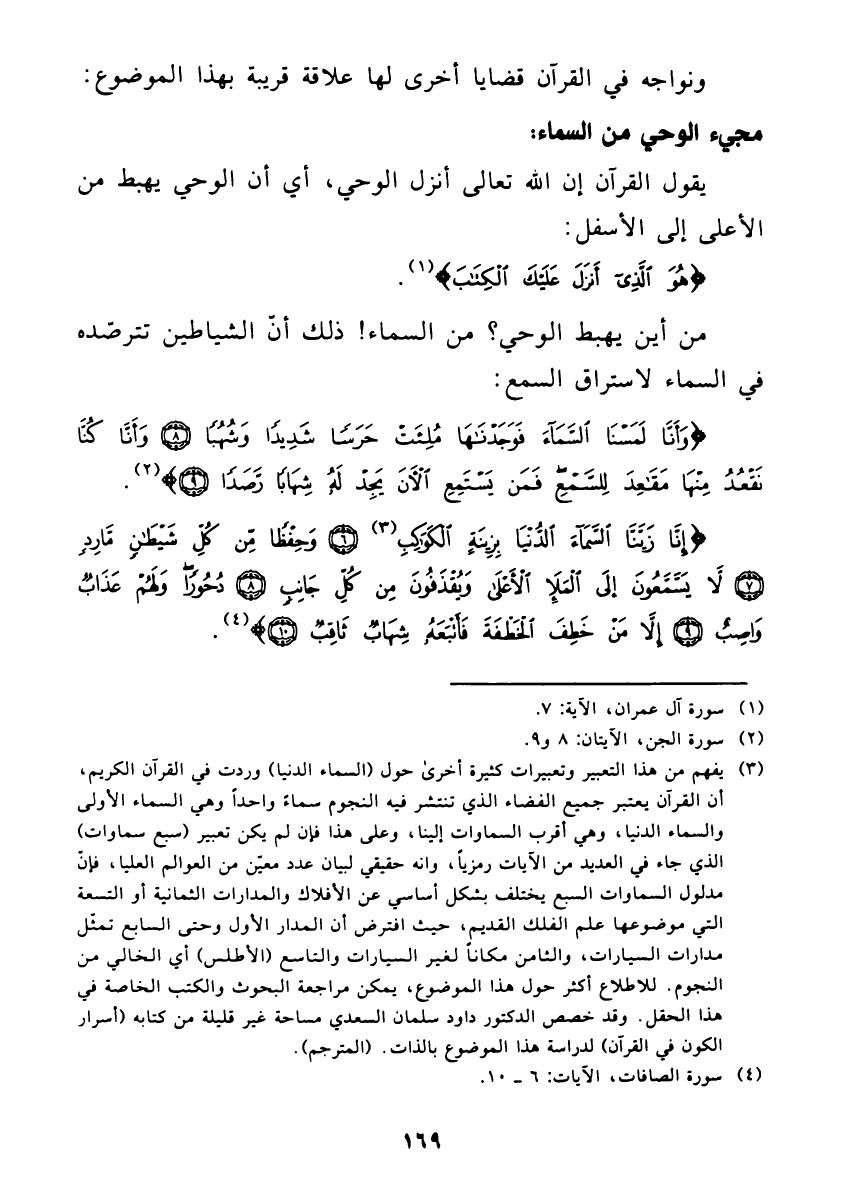 ونواجه في القرآن قضايا أخرى لها علاقة قريبة بهذا الموضوع:
مجيء الوحي من السماء:
يقول القرآن إن الله تعالى أنزل الوحي، أي أن الوحي يهبط من
الأعلى إلى الأسفل:
﴿هُوَ ٱلَّذِىٓ أَنزَلَ عَلَيْكَ ٱلْكِتَٰبَ﴾(١).
من أين يهبط الوحي؟ من السماء! ذلك أنّ الشياطين تترصّده
في السماء لاستراق السمع:
﴿وَأَنَّا لَمَسْنَا ٱلسَّمَآءَ فَوَجَدْنَٰهَا مُلِئَتْ حَرَسًا شَدِيدًا وَشُهُبًا ٨ وَأَنَّا كُنَّا
نَقْعُدُ مِنْهَا مَقَٰعِدَ لِلسَّمْعِ ۖ فَمَن يَسْتَمِعِ ٱلْآنَ يَجِدْ لَهُۥ شِهَابًا رَّصَدًا ٩﴾(٢).
﴿إِنَّا زَيَّنَّا ٱلسَّمَآءَ ٱلدُّنْيَا بِزِينَةٍ ٱلْكَوَاكِبِ(٣) ٦ وَحِفْظًا مِّن كُلِّ شَيْطَٰنٍ مَّارِدٍ
٧ لَّا يَسَّمَّعُونَ إِلَى ٱلْمَلَإِ ٱلْأَعْلَىٰ وَيُقْذَفُونَ مِن كُلِّ جَانِبٍ ٨ دُحُورًا ۖ وَلَهُمْ عَذَابٌ
وَاصِبٌ ٩ إِلَّا مَنْ خَطِفَ ٱلْخَطْفَةَ فَأَتْبَعَهُۥ شِهَابٌ ثَاقِبٌ ١٠﴾(٤).
(١) سورة آل عمران، الآية: ٧.
(٢) سورة الجن، الآيتان: ٨ و٩.
(٣) يفهم من هذا التعبير وتعبيرات كثيرة أخرىٰ حول (السماء الدنيا) وردت في القرآن الكريم،
أن القرآن يعتبر جميع الفضاء الذي تنتشر فيه النجوم سماءً واحداً وهي السماء الأولى
والسماء الدنيا، وهي أقرب السماوات إلينا، وعلى هذا فإن لم يكن تعبير (سبع سماوات)
الذي جاء في العديد من الآيات رمزياً، وانه حقيقي لبيان عدد معيّن من العوالم العليا، فإنّ
مدلول السماوات السبع يختلف بشكل أساسي عن الأفلاك والمدارات الثمانية أو التسعة
التي موضوعها علم الفلك القديم، حيث افترض أن المدار الأول وحتى السابع تمثّل
مدارات السيارات، والثامن مكاناً لغير السيارات والتاسع (الأطلس) أي الخالي من
النجوم. للاطلاع أكثر حول هذا الموضوع، يمكن مراجعة البحوث والكتب الخاصة في
هذا الحقل. وقد خصص الدكتور داود سلمان السعدي مساحة غير قليلة من كتابه (أسرار
الكون في القرآن) لدراسة هذا الموضوع بالذات. (المترجم).
(٤) سورة الصافات، الآيات: ٦ ـ ١٠.
١٦٩